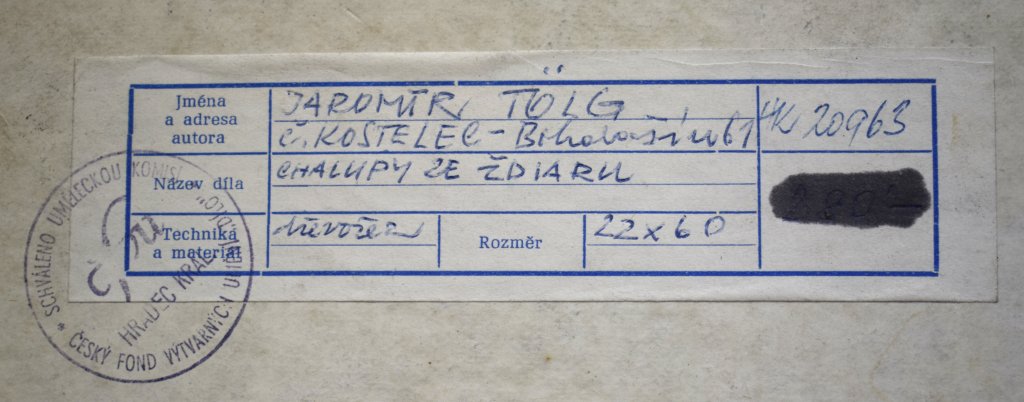 Jména
a adresa
autora
JAROMÍR TÖLG
Č. KOSTELEC - Bohdašín 61
HK 20963
Název díla
CHALUPY ZE ŽDIARU
Technika
a materiál
dřevořez
Rozměr
22x60
SCHVÁLENO UMĚLECKOU KOMISÍ
HRADEC KRÁL.
* ČESKÝ FOND VÝTVARNÝCH UMĚNÍ